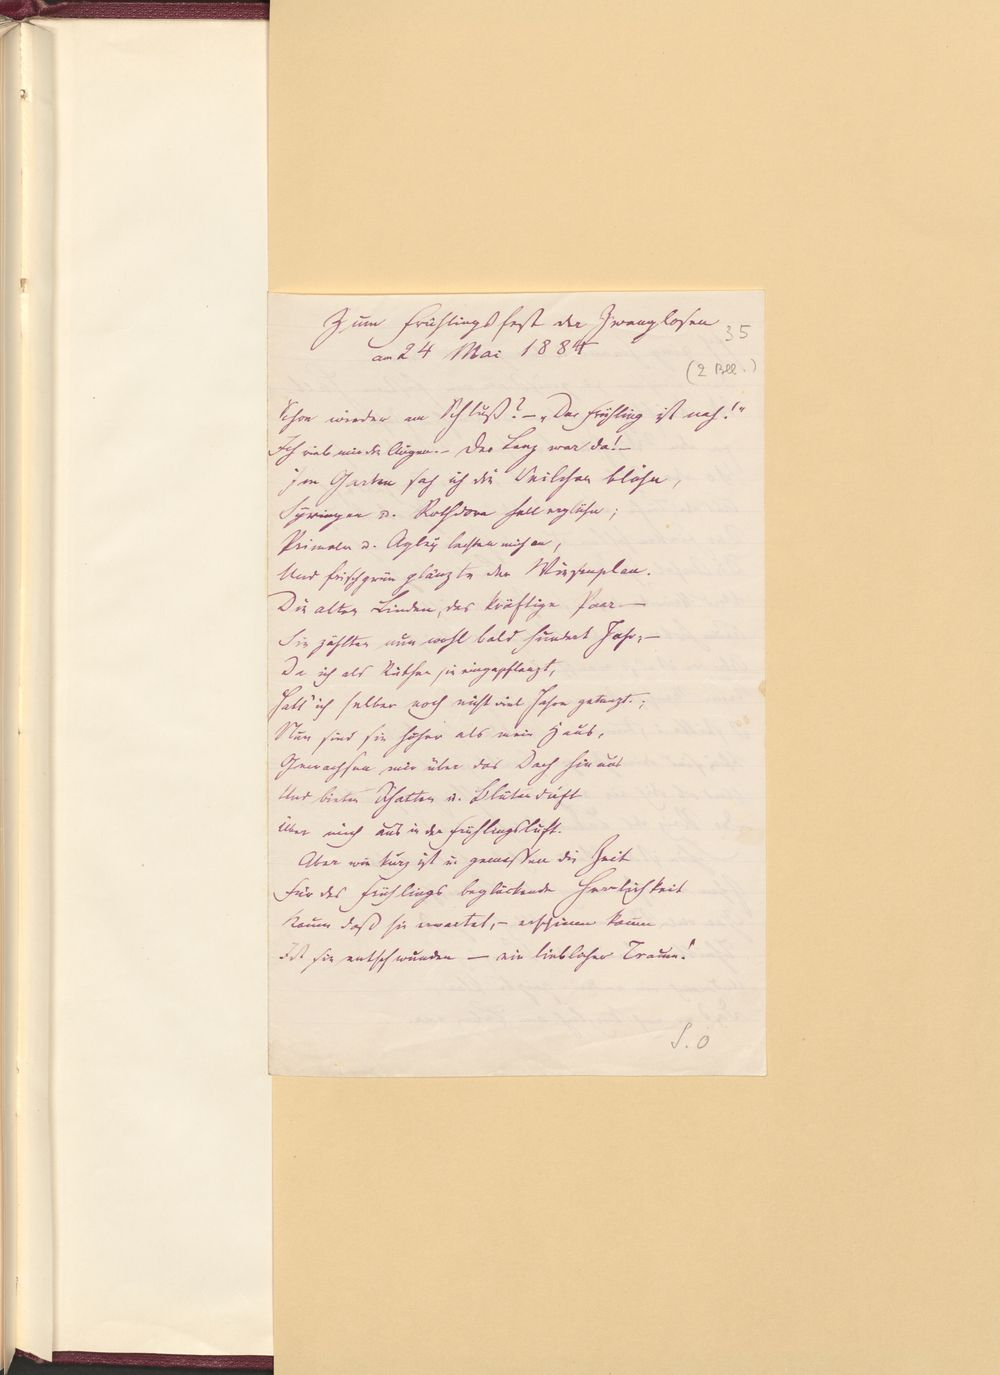 Zum Frühlingsfest der Zwanglosen
am 24 Mai 1884
35
(2 Bll.)
Schon wieder am Schluß? – „Der Frühling ist nah!"
Ich rieb mir die Augen. – Der Lenz war da! –
Im Garten sah ich die Veilchen blühn,
Syringen u. Rothdorn hell erglühn;
Primeln u. Agley lachten mich an,
Und frischgrün glänzte der Wiesenplan.
Die alten Linden, das kräftige Paar –
Sie zählten nun wohl bald hundert Jahr, –
Da ich als Ruthen sie eingepflanzt,
Hatt' ich selber noch nicht viel Jahre getanzt.;
Nun sind sie höher als mein Haus,
Gewachsen mir über das Dach hinaus
Und bieten Schatten u. Blütenduft
Über mich aus in der Frühlingsluft.
Aber wie kurz ist u. gemessen die Zeit
Für des Frühlings beglückende Herrlichkeit
Kaum daß sie erwartet, – erschienen kaum
Ist sie entschwunden – ein lieblicher Traum!